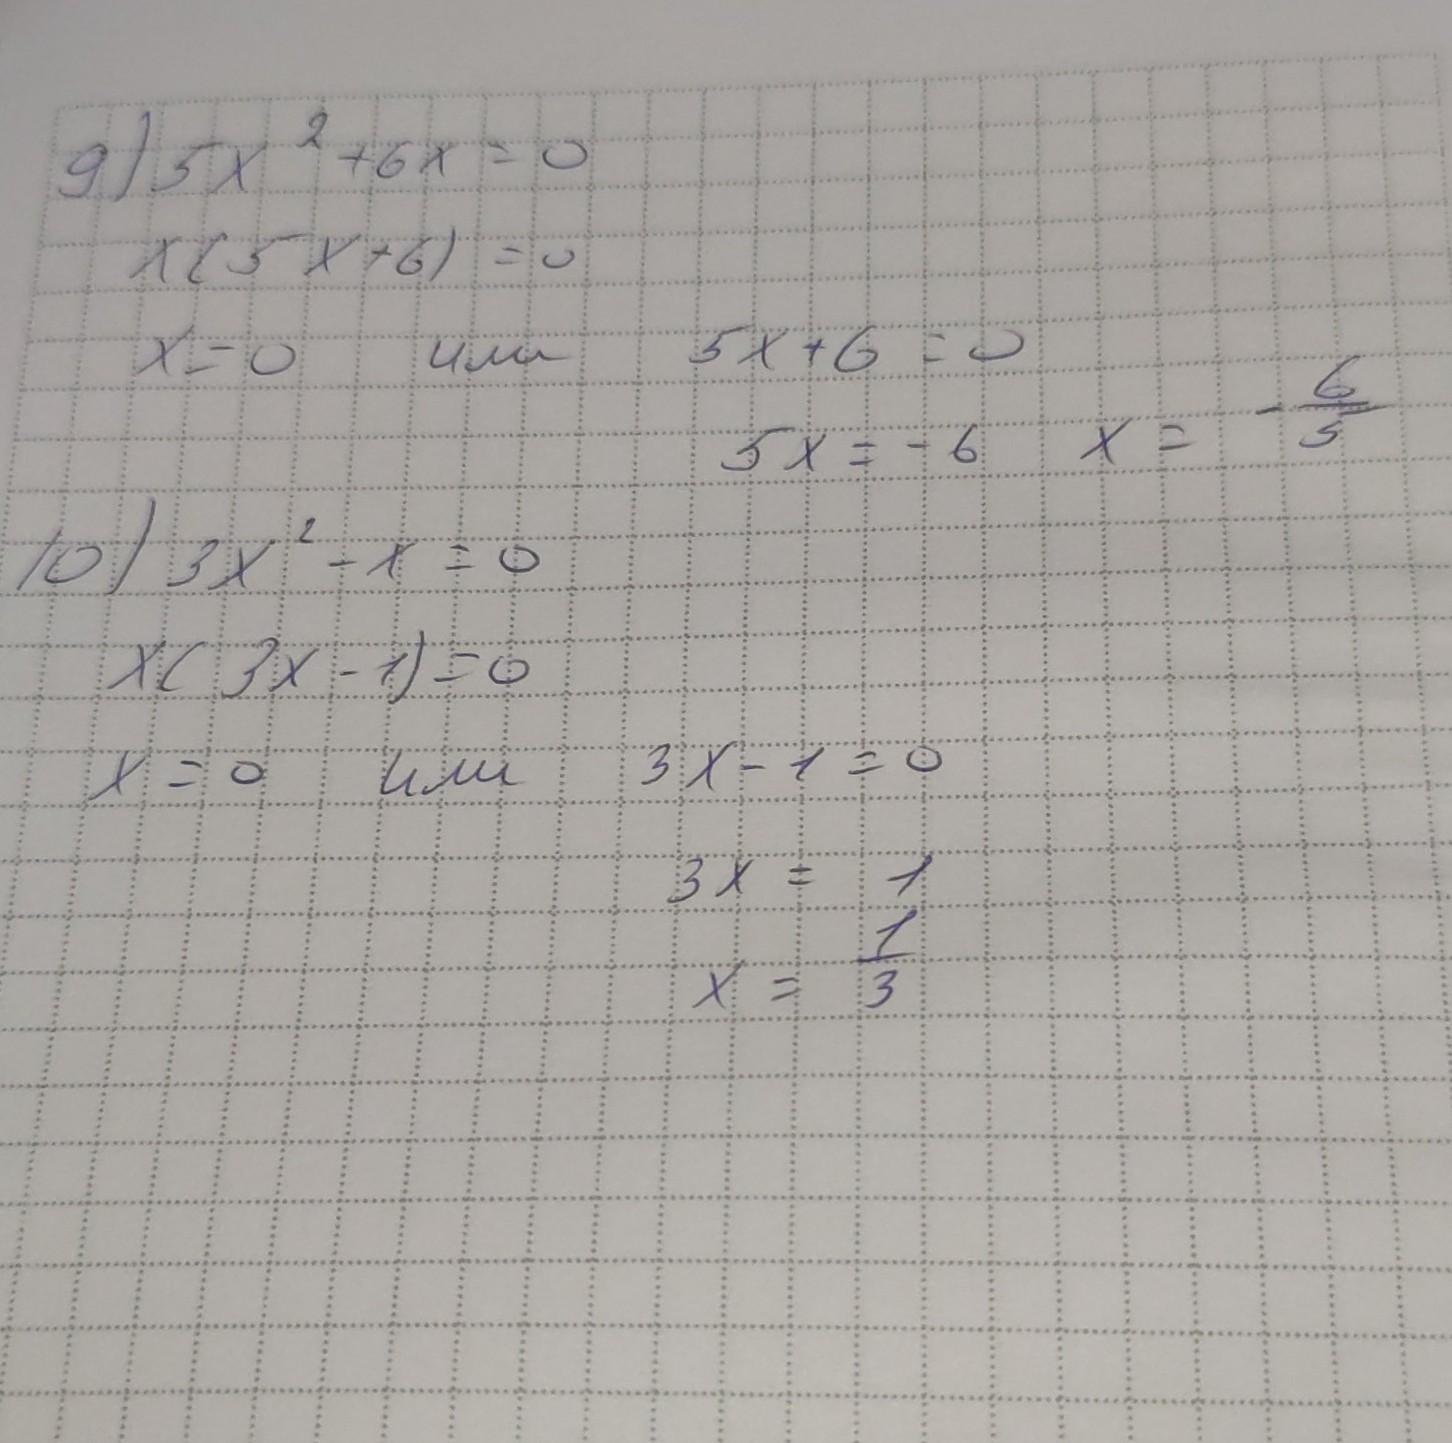 9) 5x² + 6x = 0
x(5x+6) = 0
x = 0 или 5x+6 = 0
5x = -6 x = -6/5
10) 3x² - x = 0
x(3x-1) = 0
x = 0 или 3x-1 = 0
3x = 1
x = 1/3